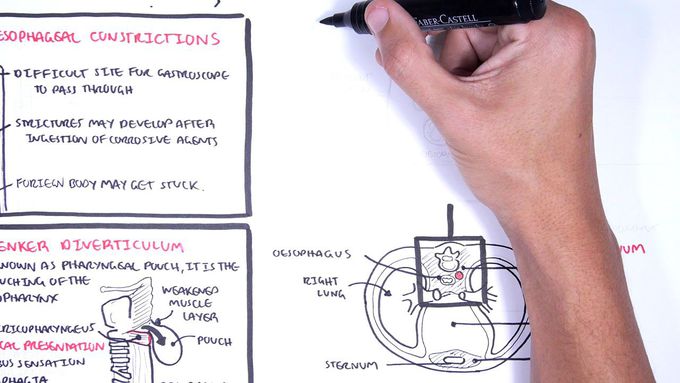 ESOPHAGEAL CONSTRICTIONS
- DIFFICULT SITE FOR GASTROSCOPE
TO PASS THROUGH
- STRICTURES MAY DEVELOP AFTER
INGESTION OF CORROSIVE AGENTS
- FORIEGN BODY MAY GET STUCK.
ENKER DIVERTICULUM
NOWN AS PHARYNGEAL POUCH, IT IS THE
UCHING OF THE
OPHARYNX
WEAKENED
MUSCLE
LAYER
RICOPHARYNGEUS
CAL PRESENTATION
POUCH
BUS SENSATION
PHAGIA
FABER CASTELL
OESOPHAGUS
RIGHT
LUNG
STERNUM
UM